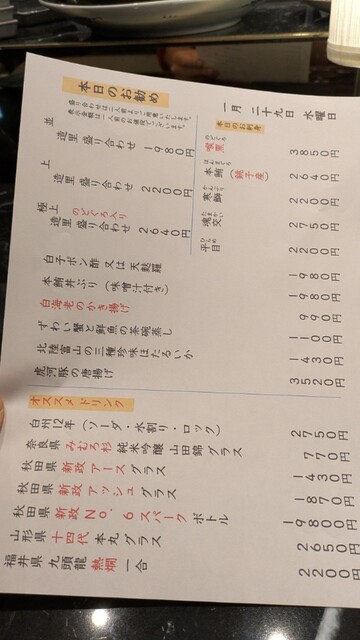 一月 二十九日 水曜日
本日のお勧め
盛り合わせは二人前よりご用意いたします。
表示金額は一人前のお値段でございます。
並
造里盛り合わせ 1980円
上
造里盛り合わせ 2200円
極上 のどくろ入り
造里盛り合わせ 2640円
本日のお刺身
のどくろ
喉黒 3850円
ほんまぐろ
本鮪(銚子産) 2640円
かんぶり
寒鰤 2200円
たまかい
魂交 2750円
ひらめ
平目 2200円
白子ポン酢 又は 天麩羅 1980円
本鮪丼ぶり(味噌汁付き) 1980円
白海老のかき揚げ 990円
ずわい蟹と鮮魚の茶碗蒸し 1100円
北陸富山の三種珍味ほたるいか 1430円
虎河豚の唐揚げ 3520円
オススメドリンク
白州12年(ソーダ・水割り・ロック) 2750円
奈良県 みむろ杉 純米吟醸 山田錦 グラス 770円
秋田県 新政 アース グラス 1430円
秋田県 新政 アッシュ グラス 1870円
秋田県 新政 No.6 スパーク ボトル 19800円
山形県 十四代 本丸 グラス 2650円
福井県 九頭龍 熱燗 一合 2200円